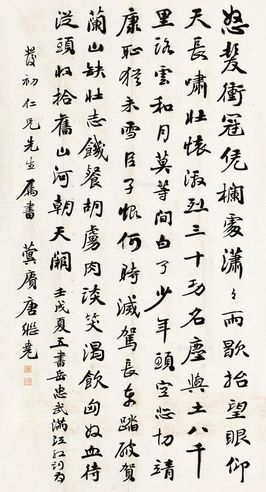 怒髮衝冠凭欄處瀟々雨歇抬望眼仰
天長嘯壯懷激烈三十功名塵與土八千
里路雲和月莫等閒白了少年頭空悲切靖
康恥猶未雪臣子恨何時滅駕長車踏破賀
蘭山缺壯志饑餐胡虜肉談笑渴飲匈奴血待
從頭收拾舊山河朝天闕 壬戌夏五書岳忠武滿江紅詞為
初仁兄先生屬書 蓂賡唐繼堯